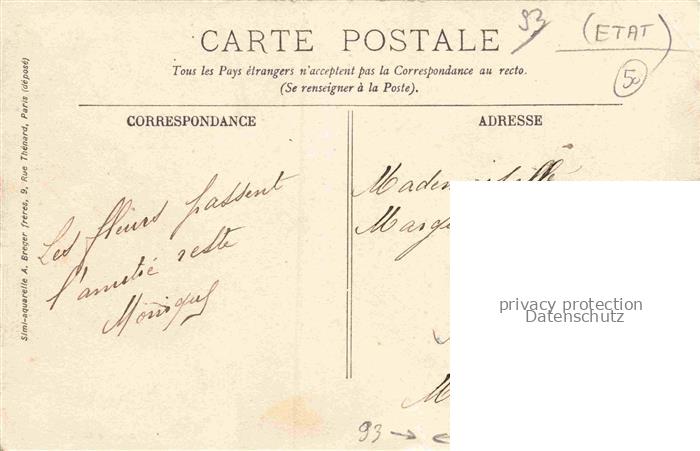 93
(ETAT)
50
CARTE POSTALE
Tous les Pays étrangers n'acceptent pas la Correspondance au recto.
(Se renseigner à la Poste).
CORRESPONDANCE
Les fleurs passent
l'amitié reste
Monique
ADRESSE
Mademoiselle
Marg
M
93 →
privacy protection
Datenschutz
Simi-aquarelle A. Breger frères, 9, Rue Thénard, Paris (déposé)